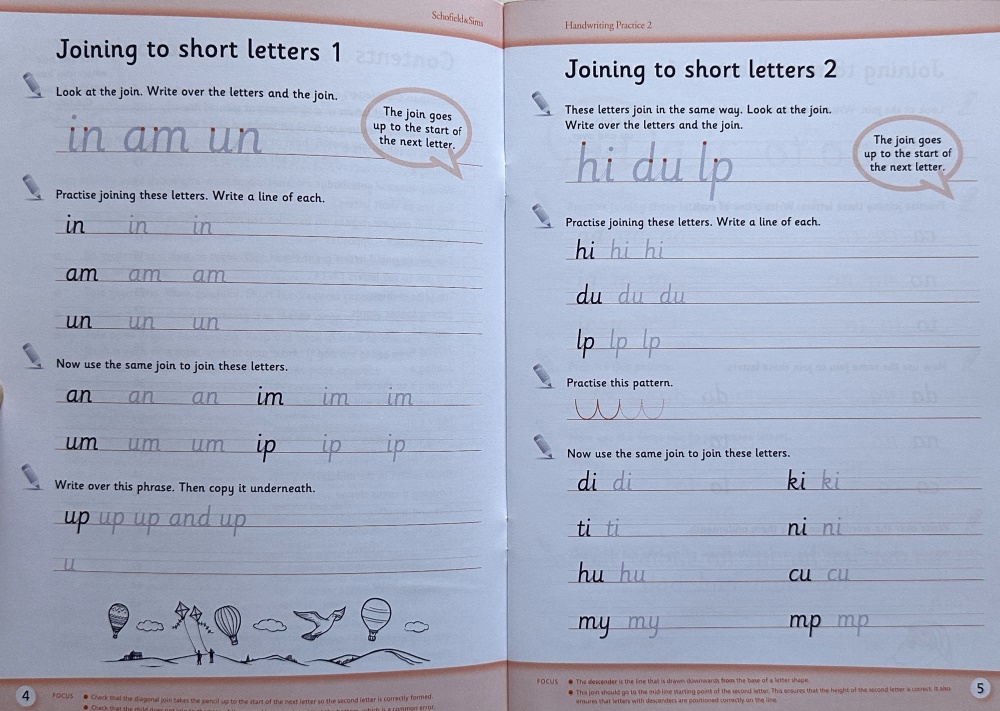 Schofield & Sims
Joining to short letters 1
Look at the join. Write over the letters and the join.
The join goes
up to the start of
the next letter.
in am un
Practise joining these letters. Write a line of each.
in in in
am am am
un un un
Now use the same join to join these letters.
an an an im im im
um um um ip ip ip
Write over this phrase. Then copy it underneath.
up up up and up
u
4
FOCUS
● Check that the diagonal join takes the pencil up to the start of the next letter so the second letter is correctly formed.
which is a common error.
Handwriting Practice 2
Joining to short letters 2
These letters join in the same way. Look at the join.
Write over the letters and the join.
The join goes
up to the start of
the next letter.
hi du lp
Practise joining these letters. Write a line of each.
hi hi hi
du du du
lp lp lp
Practise this pattern.
Now use the same join to join these letters.
di di ki ki
ti ti ni ni
hu hu cu cu
my my mp mp
FOCUS
● The descender is the line that is drawn downwards from the base of a letter shape.
● This join should go to the mid-line starting point of the second letter. This ensures that the height of the second letter is correct. It also
ensures that letters with descenders are positioned correctly on the line.
5